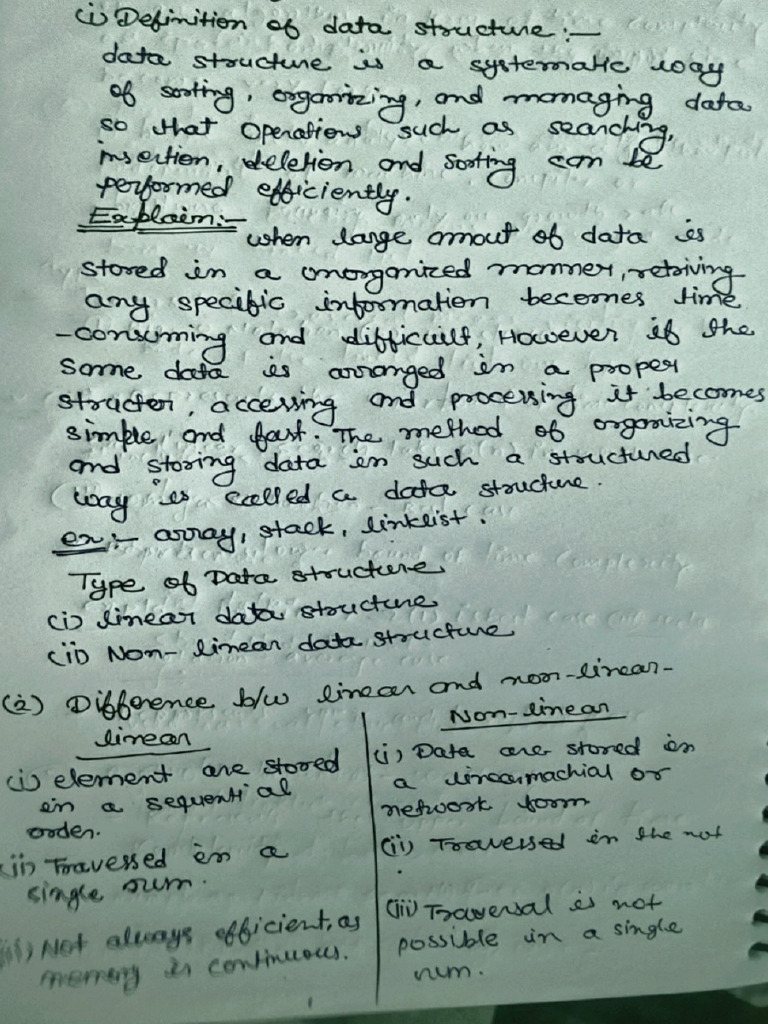 (i) Definition of data structure :—
data structure is a systematic way
of sorting, organizing, and managing data
so that operations such as searching,
insertion, deletion and sorting can be
performed efficiently.
Explain:-
when large amout of data is
stored in a unorganized manner, retriving
any specific information becomes time
-consuming and difficuilt, However if the
same data is arranged in a proper
structer, accessing and processing it becomes
simple and fast. The method of organizing
and storing data in such a structured
way is called a data structure.
ex:- array, stack, linklist.
Type of Data structure
(i) linear data structure
(ii) Non-linear data structure
(2) Difference b/w linear and non-linear-
linear
(i) element are stored
in a sequential
order.
(ii) Travessed in a
single rum.
(iii) Not always efficient, as
memory is continuous.
Non-linear
(i) Data are stored in
a or
network form
(ii) Travessed in the not
(iii) Traversal is not
possible in a single
rum.